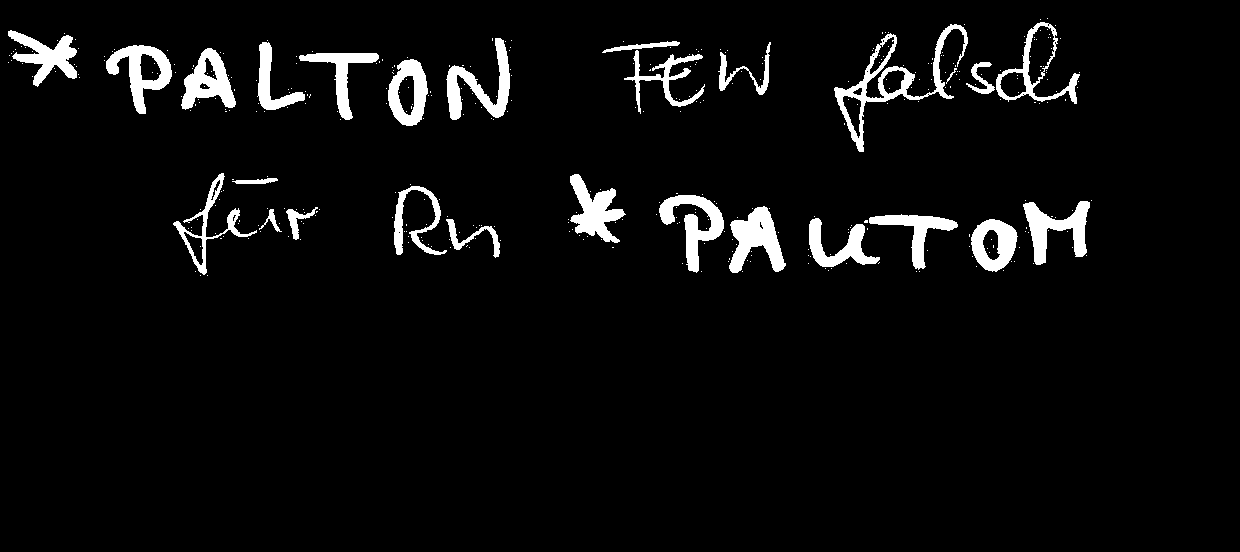 *PALTON FEW falsch
für Rn *PAUTOM